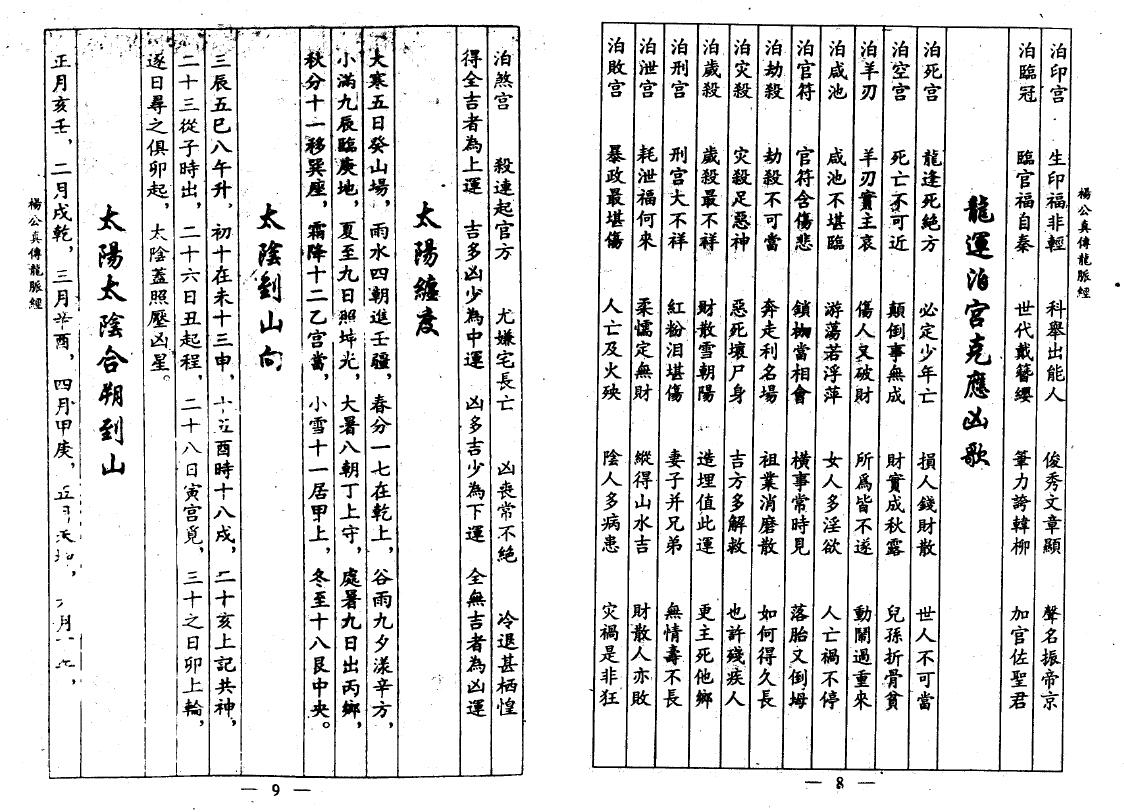 楊公真傳龍脈經
泊印宫 生印福非輕 科舉出能人 俊秀文章顯 聲名振帝京
泊臨冠 臨官福自泰 世代戴簪纓 筆力誇韓柳 加官佐聖君
龍運泊宮克應凶歌
泊死宫 龍逢死絕方 必定少年亡 損人錢財散 世人不可當
泊空宫 死亡不可近 顛倒事無成 財實成秋露 兒孫折骨貧
泊羊刃 羊刃實主哀 傷人又破財 所爲皆不遂 動鬧過重來
泊咸池 咸池不堪臨 游蕩若浮萍 女人多淫欲 人亡禍不停
泊官符 官符含傷悲 鎖枷當相會 橫事常時見 落胎又倒姆
泊劫殺 劫殺不可當 奔走利名場 祖業消磨散 如何得久長
泊灾殺 灾殺足惡神 惡死壞尸身 吉方多解救 也許殘疾人
泊歲殺 歲殺最不祥 財散雪朝陽 造埋值此運 更主死他鄉
泊刑宫 刑宫大不祥 紅粉泪堪傷 妻子并兄弟 無情壽不長
泊泄宫 耗泄福何來 柔懦定無財 縱得山水吉 財散人亦敗
泊敗宫 暴政最堪傷 人亡及火殃 陰人多病患 灾禍是非狂
— 8 —
泊煞宫 殺連起官方 尤嫌宅長亡 凶喪常不絕 冷退甚栖惶
得全吉者為上運 吉多凶少為中運 凶多吉少為下運 全無吉者為凶運
太陽纏度
大寒五日癸山場，雨水四朝進壬疆，春分一七在乾上，谷雨九夕漾辛方，
小滿九辰臨庚地，夏至九日照坤光，大暑八朝丁上守，處暑九日出丙鄉，
秋分十一移巽座，霜降十二乙宫當，小雪十一居甲上，冬至十八艮中央。
太陰到山向
三辰五巳八午升，初十在未十三申，十五酉時十八戌，二十亥上記共神，
二十三從子時出，二十六日丑起程，二十八日寅宫覓，三十之日卯上輪，
逐日尋之俱卯起，太陰蓋照壓凶星。
太陽太陰合朔到山
正月亥壬，二月戌乾，三月辛酉，四月甲庚，
楊公真傳龍脈經
— 9 —